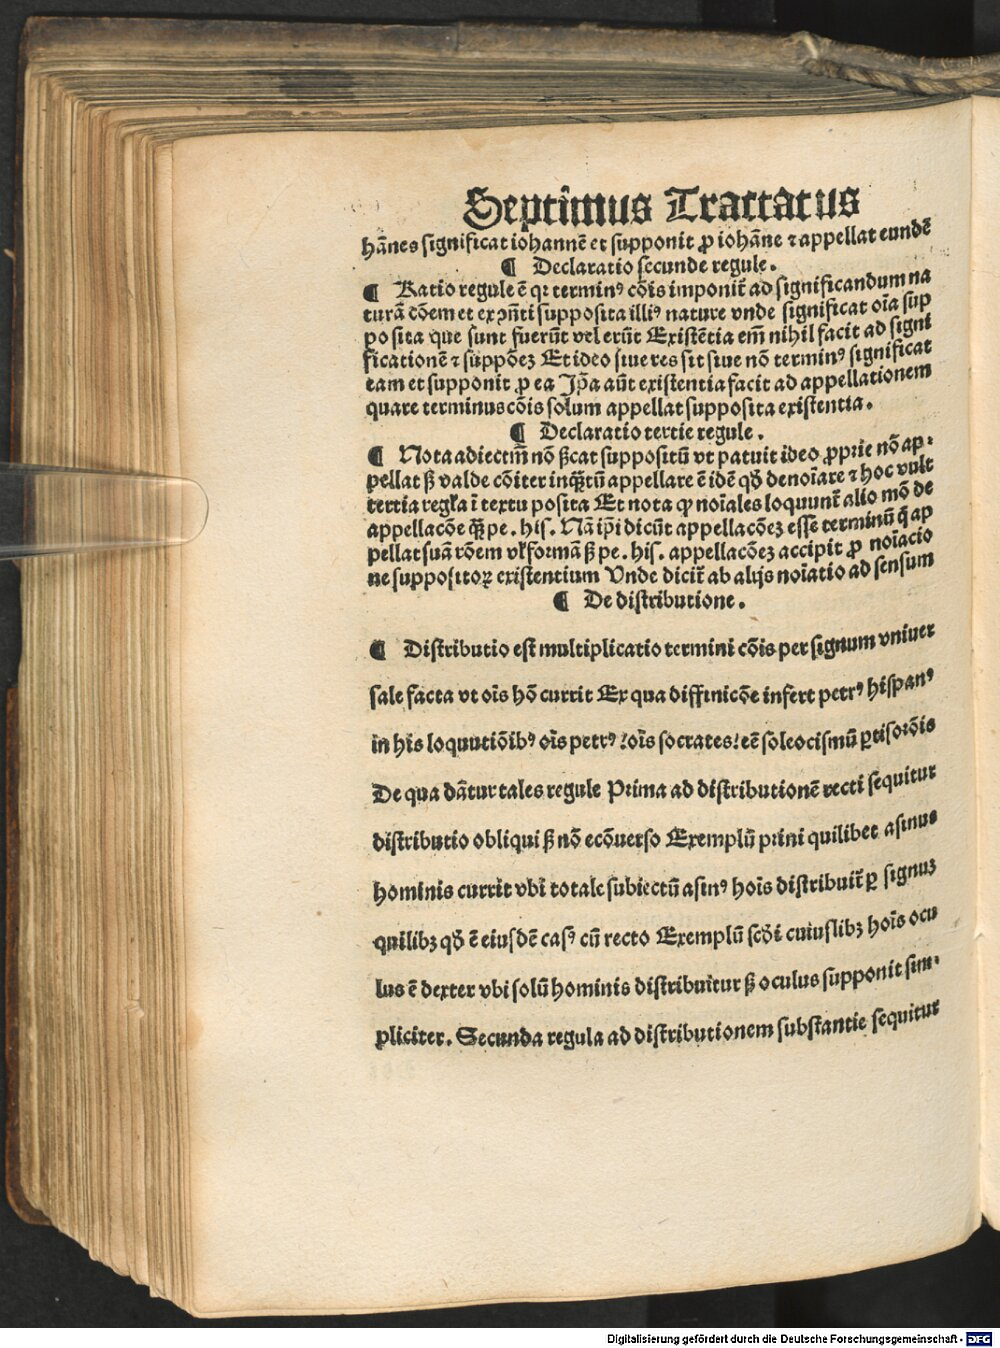 Septimus Tractatus
hānes significat iohannē et supponit ꝓ iohāne ⁊ appellat eundē
¶ Declaratio secunde regule.
¶ Ratio regule ē qꝛ terminꝰ cōis imponit̃ ad significandum na
turā cōem et ex ꝯñti supposita illiꝰ nature vnde significat oīa sup
posita que sunt fuerūt vel erūt Existētia em̄ nihil facit ad signi
ficationē ⁊ suppōeꝫ Et ideo siue res sit siue nō terminꝰ significat
eam et supponit ꝓ ea Ip̄a aūt existentia facit ad appellationem
quare terminus cōis solum appellat supposita existentia.
¶ Declaratio tertie regule.
¶ Nota adiectm̄ nō ßcat suppositū vt patuit ideo ꝓprie nō ap⸗
pellat ß valde cōiter inqꝫtū appellare ē idē qđ denoīare ⁊ hoc vult
tertia regl̃a ī textu posita Et nota ꝙ noīales loquunt̃ alio mō de
appellacōe qꝫ̄ pe. his. Nā ip̄i dicūt appellacōeꝫ esse terminū q̄ ap
pellat suā rōem vl̓ formā ß pe. his. appellacōeꝫ accipit ꝓ noīacio
ne suppositoꝝ existentium Vnde dicit̃ ab alijs noīatio ad sensum
¶ De distributione.
¶ Distributio est multiplicatio termini cōis per signum vniuer
sale facta vt oīs hō currit Ex qua diffinicōe infert petrꝰ hispanꝰ
in his loquutiōibꝰ oīs petrꝰ ⁊ oīs socrates ⁊ eē soleocismū ꝑtisorōis
De qua dātur tales regule Prima ad distributionē recti sequitur
distributio obliqui ß nō ecōuerso Exemplū primi quilibet asinus
hominis currit vbi totale subiectū asinꝰ hoīs distribuit̃ ꝑ signuꝫ
quilibꝫ qđ ē eiusdē casꝰ cū recto Exemplū scđi cuiuslibꝫ hoīs ocu
lus ē dexter vbi solū hominis distribuitur ß oculus supponit sim⸗
pliciter. Secunda regula ad distributionem substantie sequitur
Digitalisierung gefördert durch die Deutsche Forschungsgemeinschaft - DFG